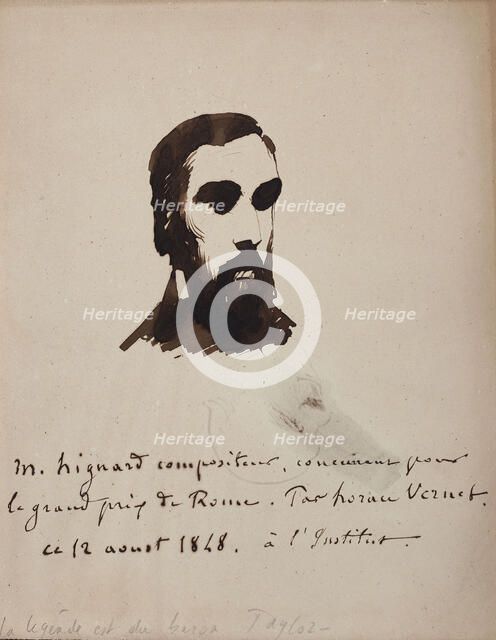 Heritage Heritage
Heritage Heritage
Heritage Heritage
m. hignard compositeur, concurrent pour
le grand prix de Rome. Par horace Vernet.
ce 12 aoust 1848. à l'Institut.
la légende est du baron Taylor-